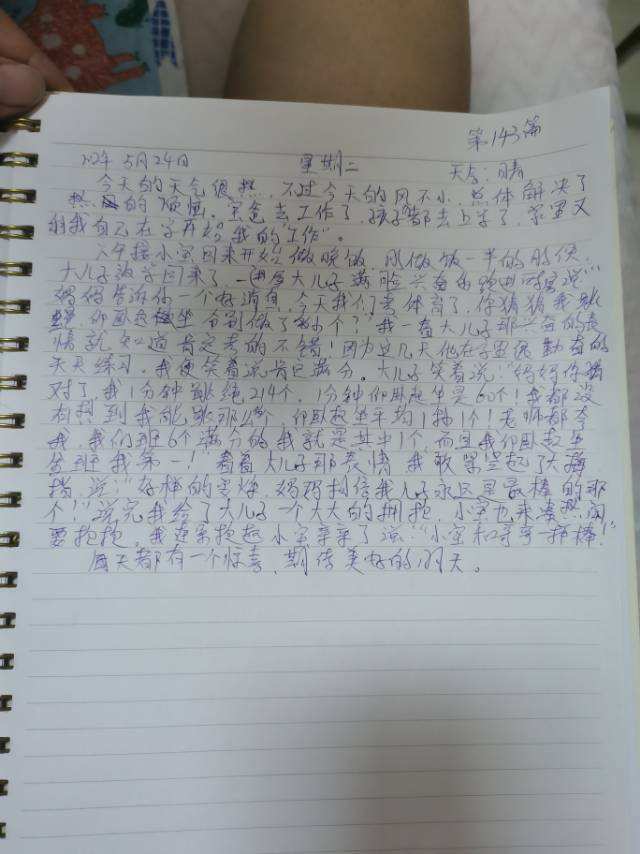 第143篇
22年5月24日 星期二 天气:晴
今天的天气很热,不过今天的风不小,总体解决了
热的烦恼。宝爸去工作了,孩子都去上学了,家里又
我自己在家开始我的"工作"。
下午接小宝回来开始做晚饭,刚做饭一半的时候,
大儿子放学回来了,大儿子满脸兴奋的跑过来说:"
妈妈告诉你一个好消息,今天我们考体育了,你猜猜我跳
绳仰卧起坐分别做了多少个?"我一看大儿子那兴奋的表
情就知道肯定考的不错!因为这几天他在家里很勤奋的
天天练习。我便笑着说肯定满分。大儿子笑着说:"妈妈你猜
对了,我1分钟跳绳214个,1分钟仰卧起坐是60个!我都没
有想到我能跳那么多个,仰卧起坐平均1秒1个!老师都夸
我,我们班6个满分的我就是其中1个,而且我仰卧起坐
全班我第一!"看着大儿子那表情,我敢紧竖起了大拇
指,说:"好样的,妈妈相信我儿子永远是最棒的那
个!"说完我给了大儿子一个大大的拥抱,小宝也来凑热闹
要抱抱,我抱起小宝亲亲了说:"小宝和哥哥一样棒!"
每天都有一个惊喜,期待美好的明天。